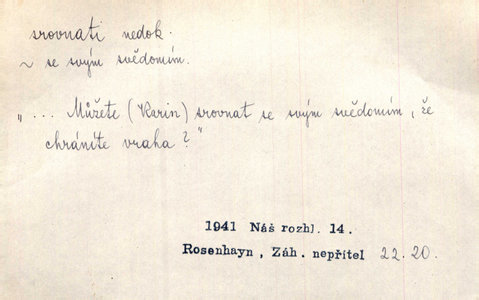 srovnati nedok.
~ se svým svědomím.
"... Můžete (Karin) srovnat se svým svědomím, že
chráníte vraha?"
1941 Náš rozhl. 14.
Rosenhayn, Záh. nepřítel 22.20.